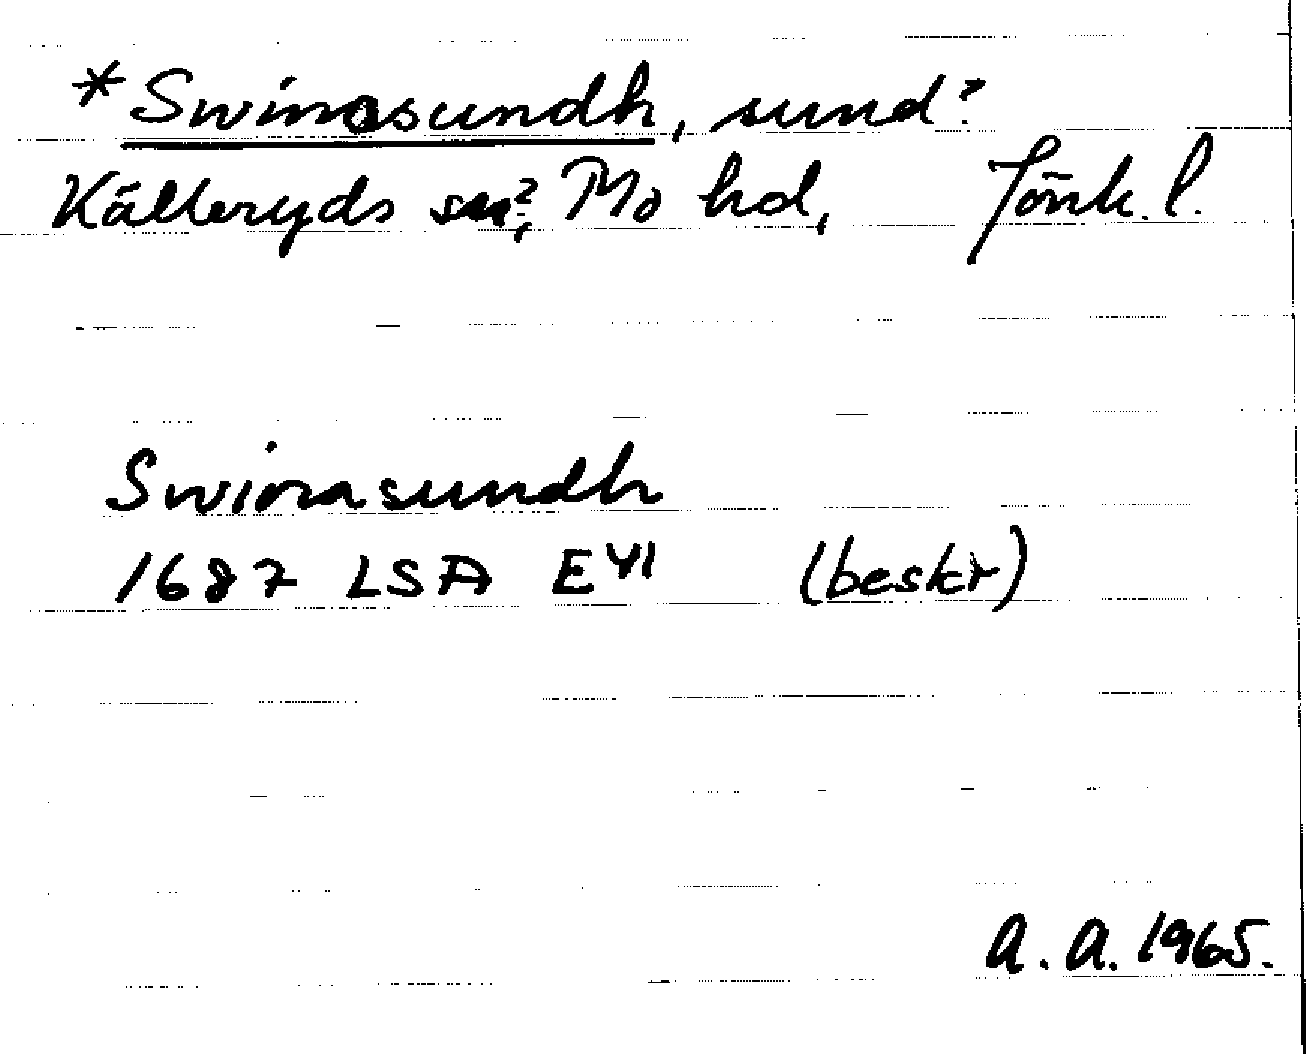 *Swinasundh, sund?
Källeryds sn?, Mo hd, Jönk. l.
Swinasundh
1687 LSA E41 (beskr)
A. A. 1965.